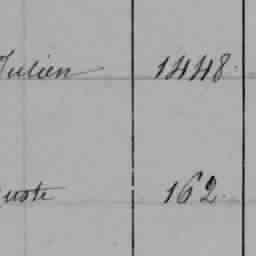 Julien 1448.
uste 162.